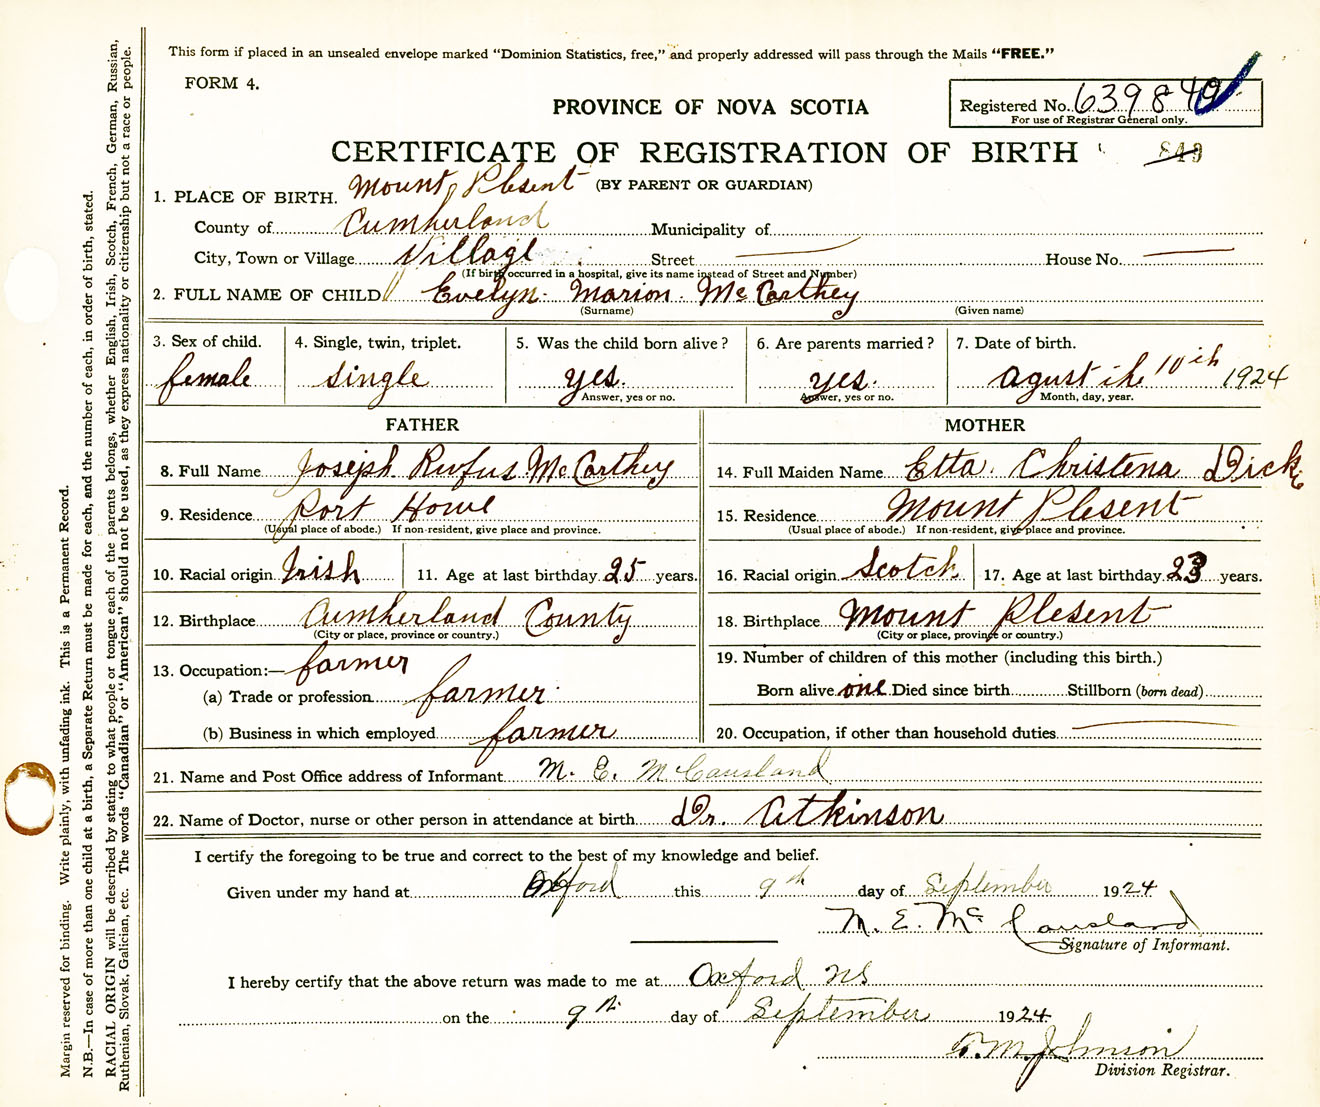 This form if placed in an unsealed envelope marked "Dominion Statistics, free," and properly addressed will pass through the Mails "FREE."
FORM 4.
PROVINCE OF NOVA SCOTIA
Registered No. 639849
For use of Registrar General only.
CERTIFICATE OF REGISTRATION OF BIRTH
849
(BY PARENT OR GUARDIAN)
1. PLACE OF BIRTH. Mount Plesent
County of Cumberland Municipality of
City, Town or Village Village Street House No.
(If birth occurred in a hospital, give its name instead of Street and Number)
2. FULL NAME OF CHILD Evelyn Marion McCarthey
(Surname) (Given name)
3. Sex of child. 4. Single, twin, triplet. 5. Was the child born alive? 6. Are parents married? 7. Date of birth.
female single yes. yes. Agust the 10th 1924
Answer, yes or no. Answer, yes or no. Month, day, year.
FATHER MOTHER
8. Full Name Joseph Rufus McCarthey 14. Full Maiden Name Etta Christena Dick
9. Residence Port Howe 15. Residence Mount Plesent
(Usual place of abode.) If non-resident, give place and province. (Usual place of abode.) If non-resident, give place and province.
10. Racial origin Irish 11. Age at last birthday 25 years. 16. Racial origin Scotch 17. Age at last birthday 23 years.
12. Birthplace Cumberland County 18. Birthplace Mount Plesent
(City or place, province or country.) (City or place, province or country.)
13. Occupation:— farmer 19. Number of children of this mother (including this birth.)
(a) Trade or profession farmer Born alive one Died since birth Stillborn (born dead)
(b) Business in which employed farmer 20. Occupation, if other than household duties
21. Name and Post Office address of Informant M. E. McCausland
22. Name of Doctor, nurse or other person in attendance at birth Dr. Atkinson
I certify the foregoing to be true and correct to the best of my knowledge and belief.
Given under my hand at Oxford this 9th day of September 1924
M. E. McCausland
Signature of Informant.
I hereby certify that the above return was made to me at Oxford NS
on the 9th day of September 1924
M. Johnson
Division Registrar.
Margin reserved for binding. Write plainly, with unfading ink. This is a Permanent Record.
N.B.—In case of more than one child at a birth, a Separate Return must be made for each, and the number of each, in order of birth, stated.
RACIAL ORIGIN will be described by stating to what people or tongue each of the parents belongs, whether English, Irish, Scotch, French, German, Russian,
Ruthenian, Slovak, Galician, etc. The words "Canadian" or "American" should not be used, as they express nationality or citizenship but not a race or people.